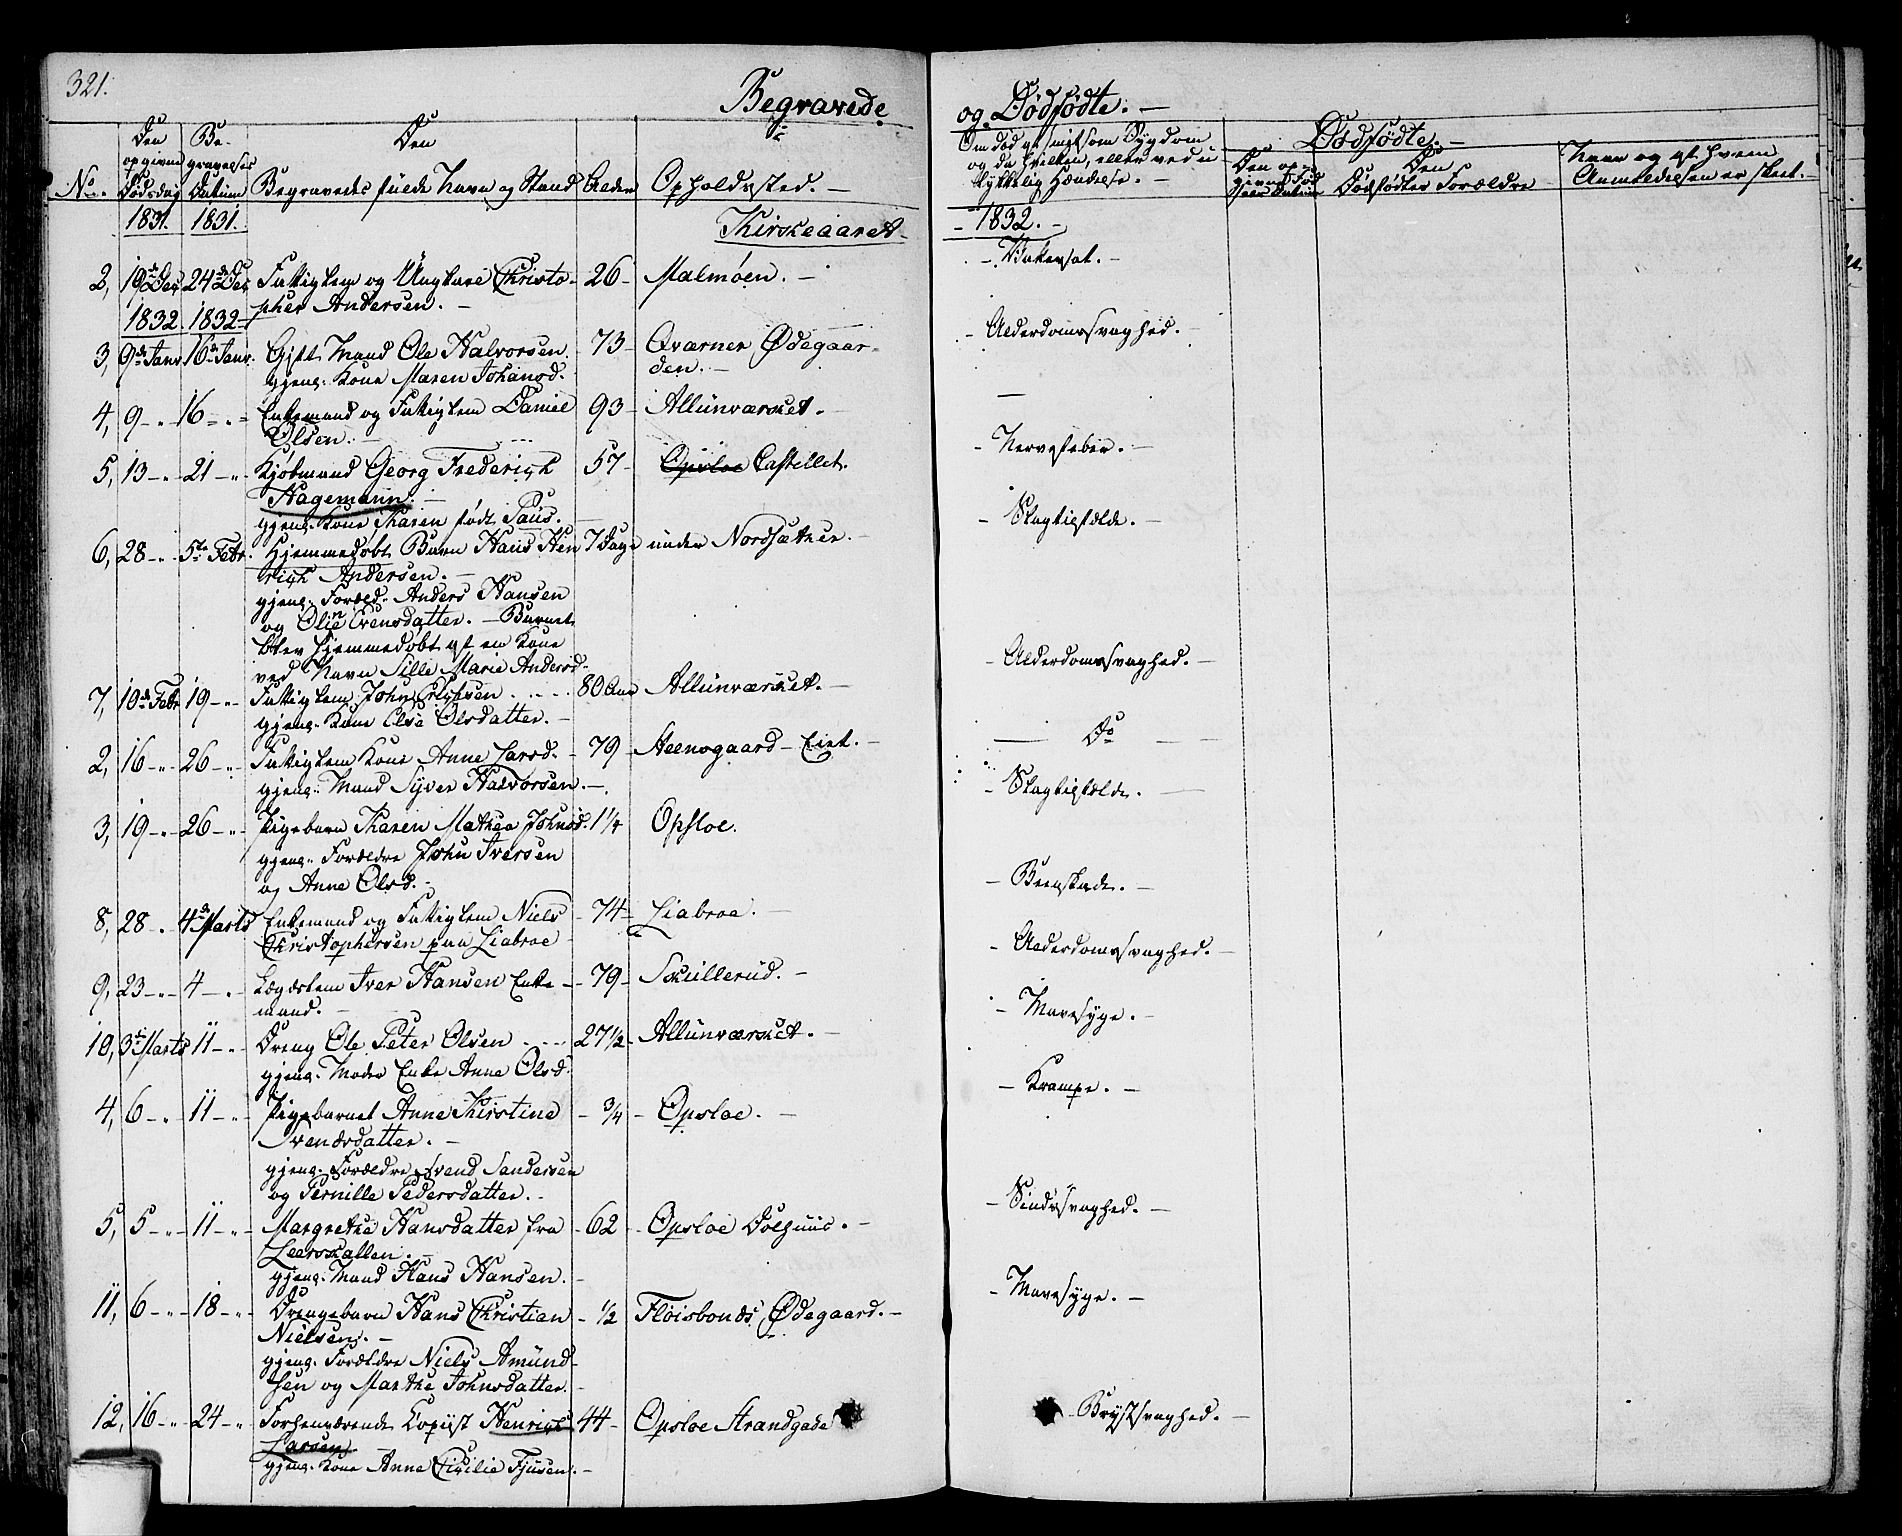 321.
Begravede
og Dødfødte. —
No.
Den opgivne Dødsdag
Begravelses Datum
Den Begravedes fulde Navn og Stand
Alder
Opholdssted. —
Om død af smitsom Sygdom
og da hvilken, eller ved u
lykkelig Hændelse. —
Dødfødte. —
Den Dødfødtes Forældre
Navn og af hvem
Anmeldelsen er skeet. —
1831. 1831.
Kirkeaaret
- 1832. -
2, 19de Dec 24de Dec Fattiglem og Ungkarl Christo- 26 - Malmøen. —
pher Andersen. —
1832 1832
3, 9de Janr 16de Janr. Gift Mand Ole Halvorsen. - 73 - Qværner Ødegaar- - Alderdomssvaghed. —
gjenl. Kone Maren Johansd. den. —
4, 9 - " 16 - " - Enkemand og Fattiglem Daniel 93 - Allunværket. - —
Olsen. —
5, 13 - " 21 - " - Kjøbmand Georg Frederich 57 - Opsloe Castellet. - Nervefeber. —
Hagemann. —
gjenl. Kone Karen født Paus. —
6, 28 - " 5te Febr. Hjemmedøbt Barn Hans Hen 7 Dage under Nordsæther. —
rich Andersen. —
gjenl. Foræld. Anders Hansen
og Oline Evensdatter. — Barnet
blev hjemmedøbt af en Kone
ved Navn Sille Marie Andersd.
7, 10de Febr 19 - " - Fattiglem John 80 Aar Allunværket. — - Alderdomssvaghed. —
gjenl. Kone Else Olsdatter. —
2, 16 - " - 26 - " - Fattiglem Kone Anne Larsd. - 79 - — Do —
gjenl. Mand Syver Halvorsen. —
3, 19 - " - 26 - " - Pigebarn Karen Mathea Johnsd. 1 1/4 Opsloe.
gjenl. Forældre John Iversen
og Anne Olsd. -
8, 28 - " 4de Marts Enkemand og Fattiglem Niels - 74 - Liabroe. — - Beenskade. —
Christophersen paa Liabroe
9, 23 - " - 4 - " - Lægdslem Iver Hansen Enke - 79 - Skullerud. — - Alderdomssvaghed. —
mand. —
10, 3de Marts 11 - " - Dreng Ole Peter Olsen 27 1/2 - Allunværket. — - Mavesyge. —
gjenl. Moder Enke Anne Olsd.
4, 6 - " 11 - " Pigebarnet Anne Kirstine - 3/4 - Opsloe. — - Krampe. —
Svendsdatter. —
gjenl. Forældre Svend Sandersen
og Pernille Pedersdatter. —
5, 5 - " - 11 - " - Margrethe Hansdatter fra - 62 - Opsloe Dolhuus. — - Sindssvaghed. —
Leerskallen. —
gjenl. Mand Hans Hansen. —
11, 6 - " - 18 - " - Drengebarn Hans Christian - 1/2 Fløisbonds Ødegaard. — - Mavesyge. —
Nielsen. —
gjenl. Forældre Niels Amund-
sen og Marthe Johnsdatter. -
12, 16 - " - 24 - " - Forhenværende Copiist Henrich 44 - Opsloe Strandgade - Brystsvaghed. —
Larsen
gjenl. Kone Anne Cicilie Fjusen. —